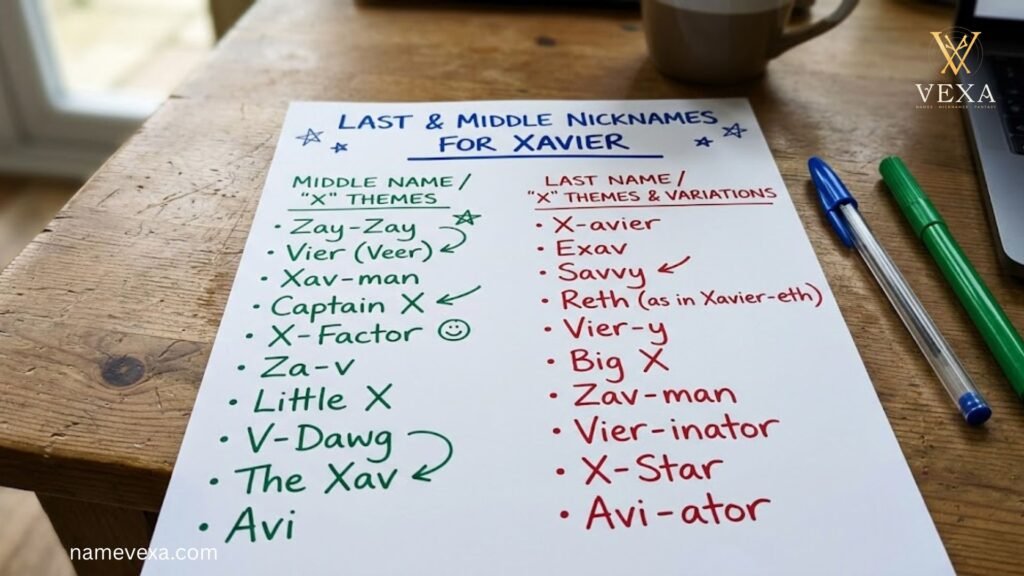 LAST & MIDDLE NICKNAMES
FOR XAVIER
MIDDLE NAME /
"X" THEMES
• Zay-Zay
• Vier (Veer)
• Xav-man
• Captain X
• X-Factor
• Za-v
• Little X
• V-Dawg
• The Xav
• Avi
LAST NAME /
"X" THEMES & VARIATIONS
• X-avier
• Exav
• Savvy
• Reth (as in Xavier-eth)
• Vier-y
• Big X
• Zav-man
• Vier-inator
• X-Star
• Avi-ator
VEXA
namevexa.com